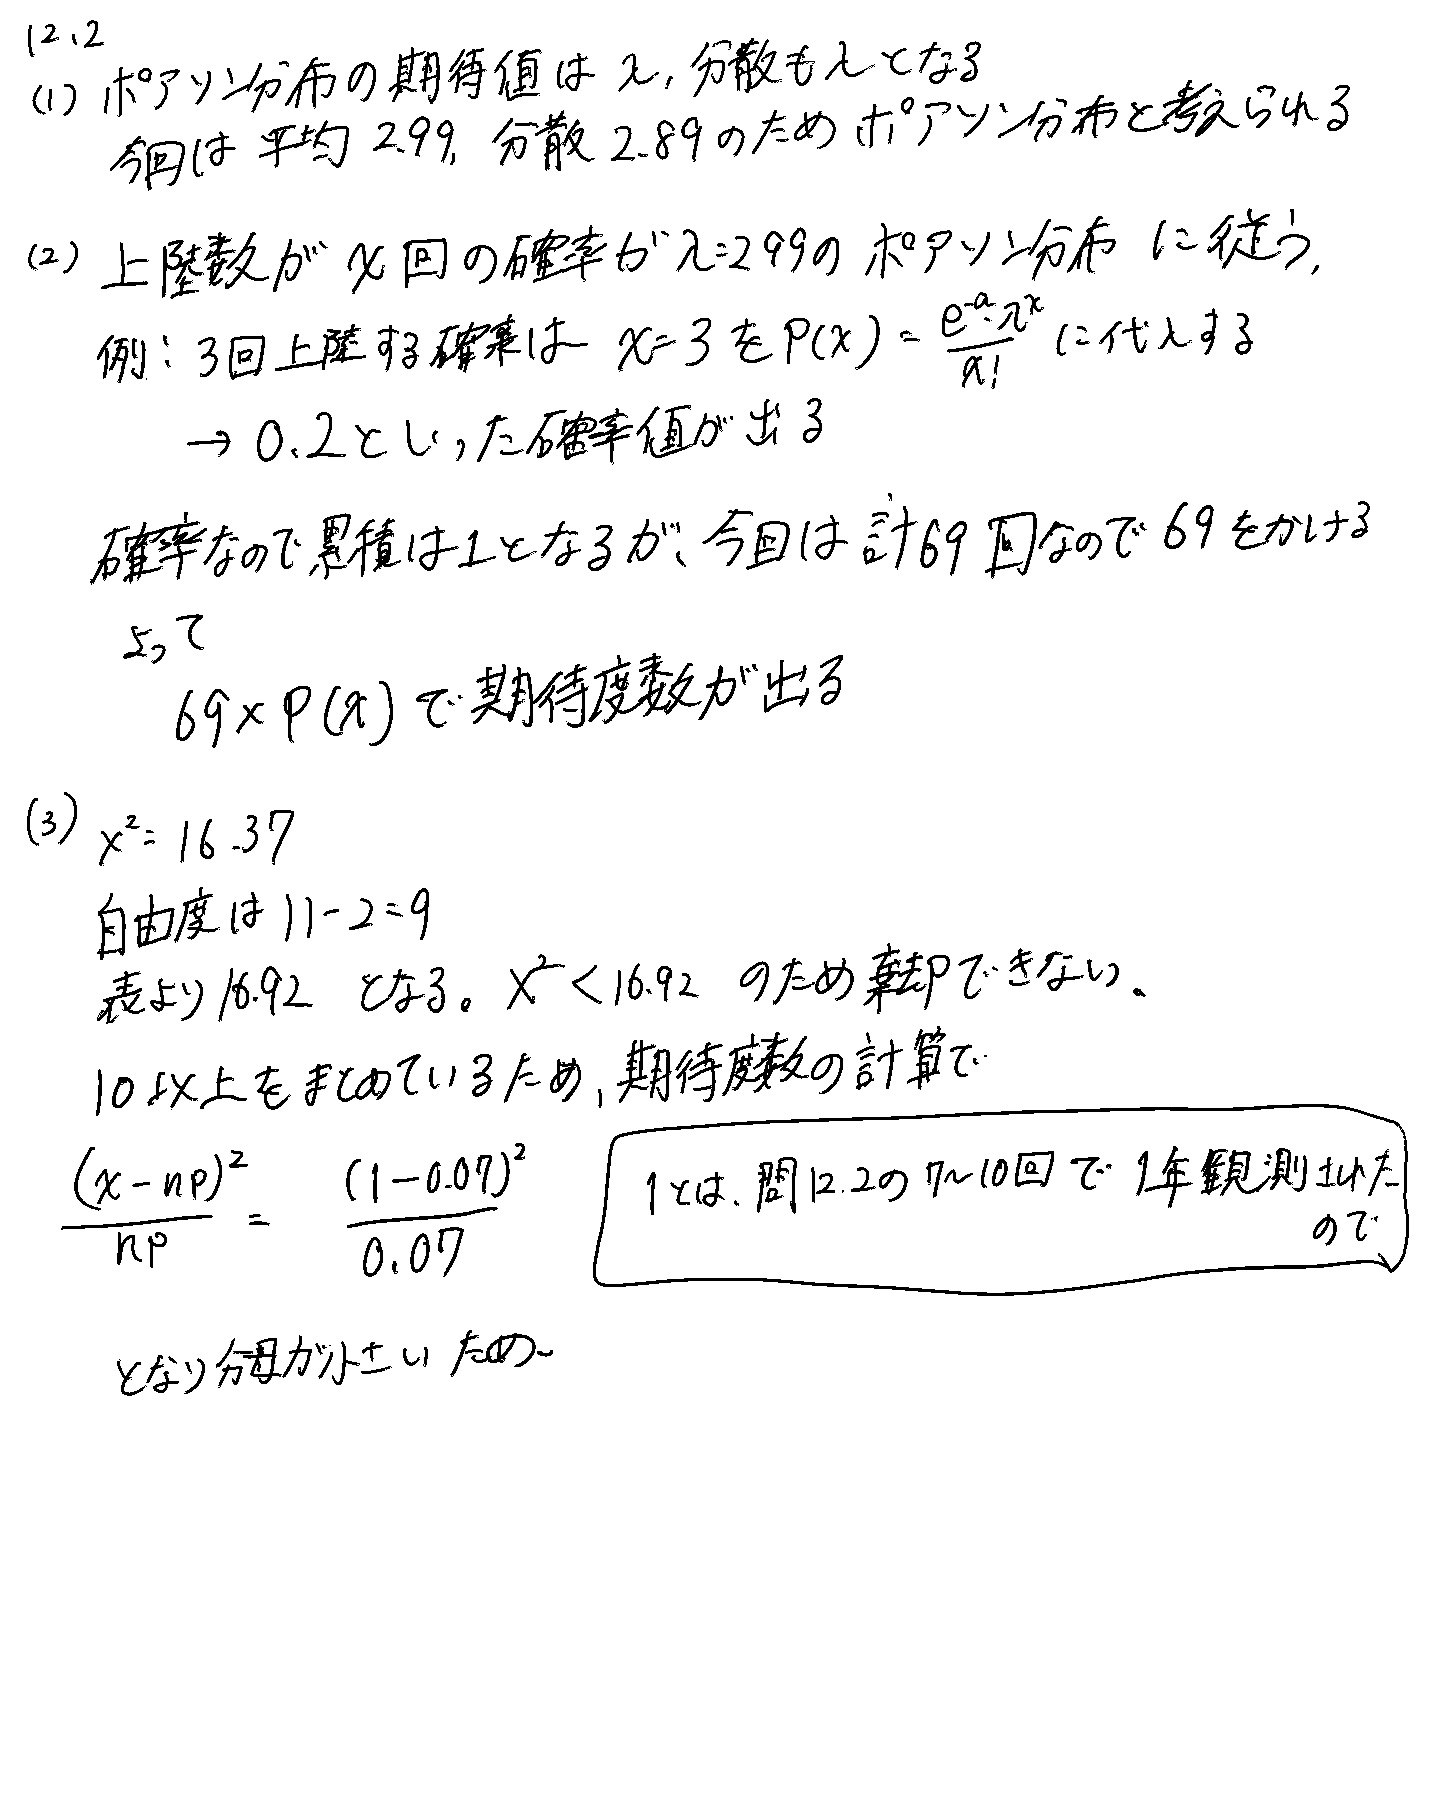 12.2
(1) ポアソン分布の期待値は λ, 分散もλとなる
今回は 平均 2.99, 分散 2.89 のため ポアソン分布と考えられる
(2) 上陸数が x回の確率がλ=2.99の ポアソン分布 に従う,
例: 3回上陸する確率は x=3 を P(x) = e^-a・λ^x / x! に代入する
→ 0.2といった確率値が出る
確率なので累積は1となるが、今回は計69回なので 69をかける
よって
69×P(x) で期待度数が出る
(3) x²= 16.37
自由度は 11-2=9
表より16.92 となる。 X²<16.92 のため棄却できない.
10以上をまとめているため, 期待度数の計算で
(x-np)² / np = (1-0.07)² / 0.07
1とは、問12.2の 7~10回 で 1年観測された
ので
となり分母が小さいため~